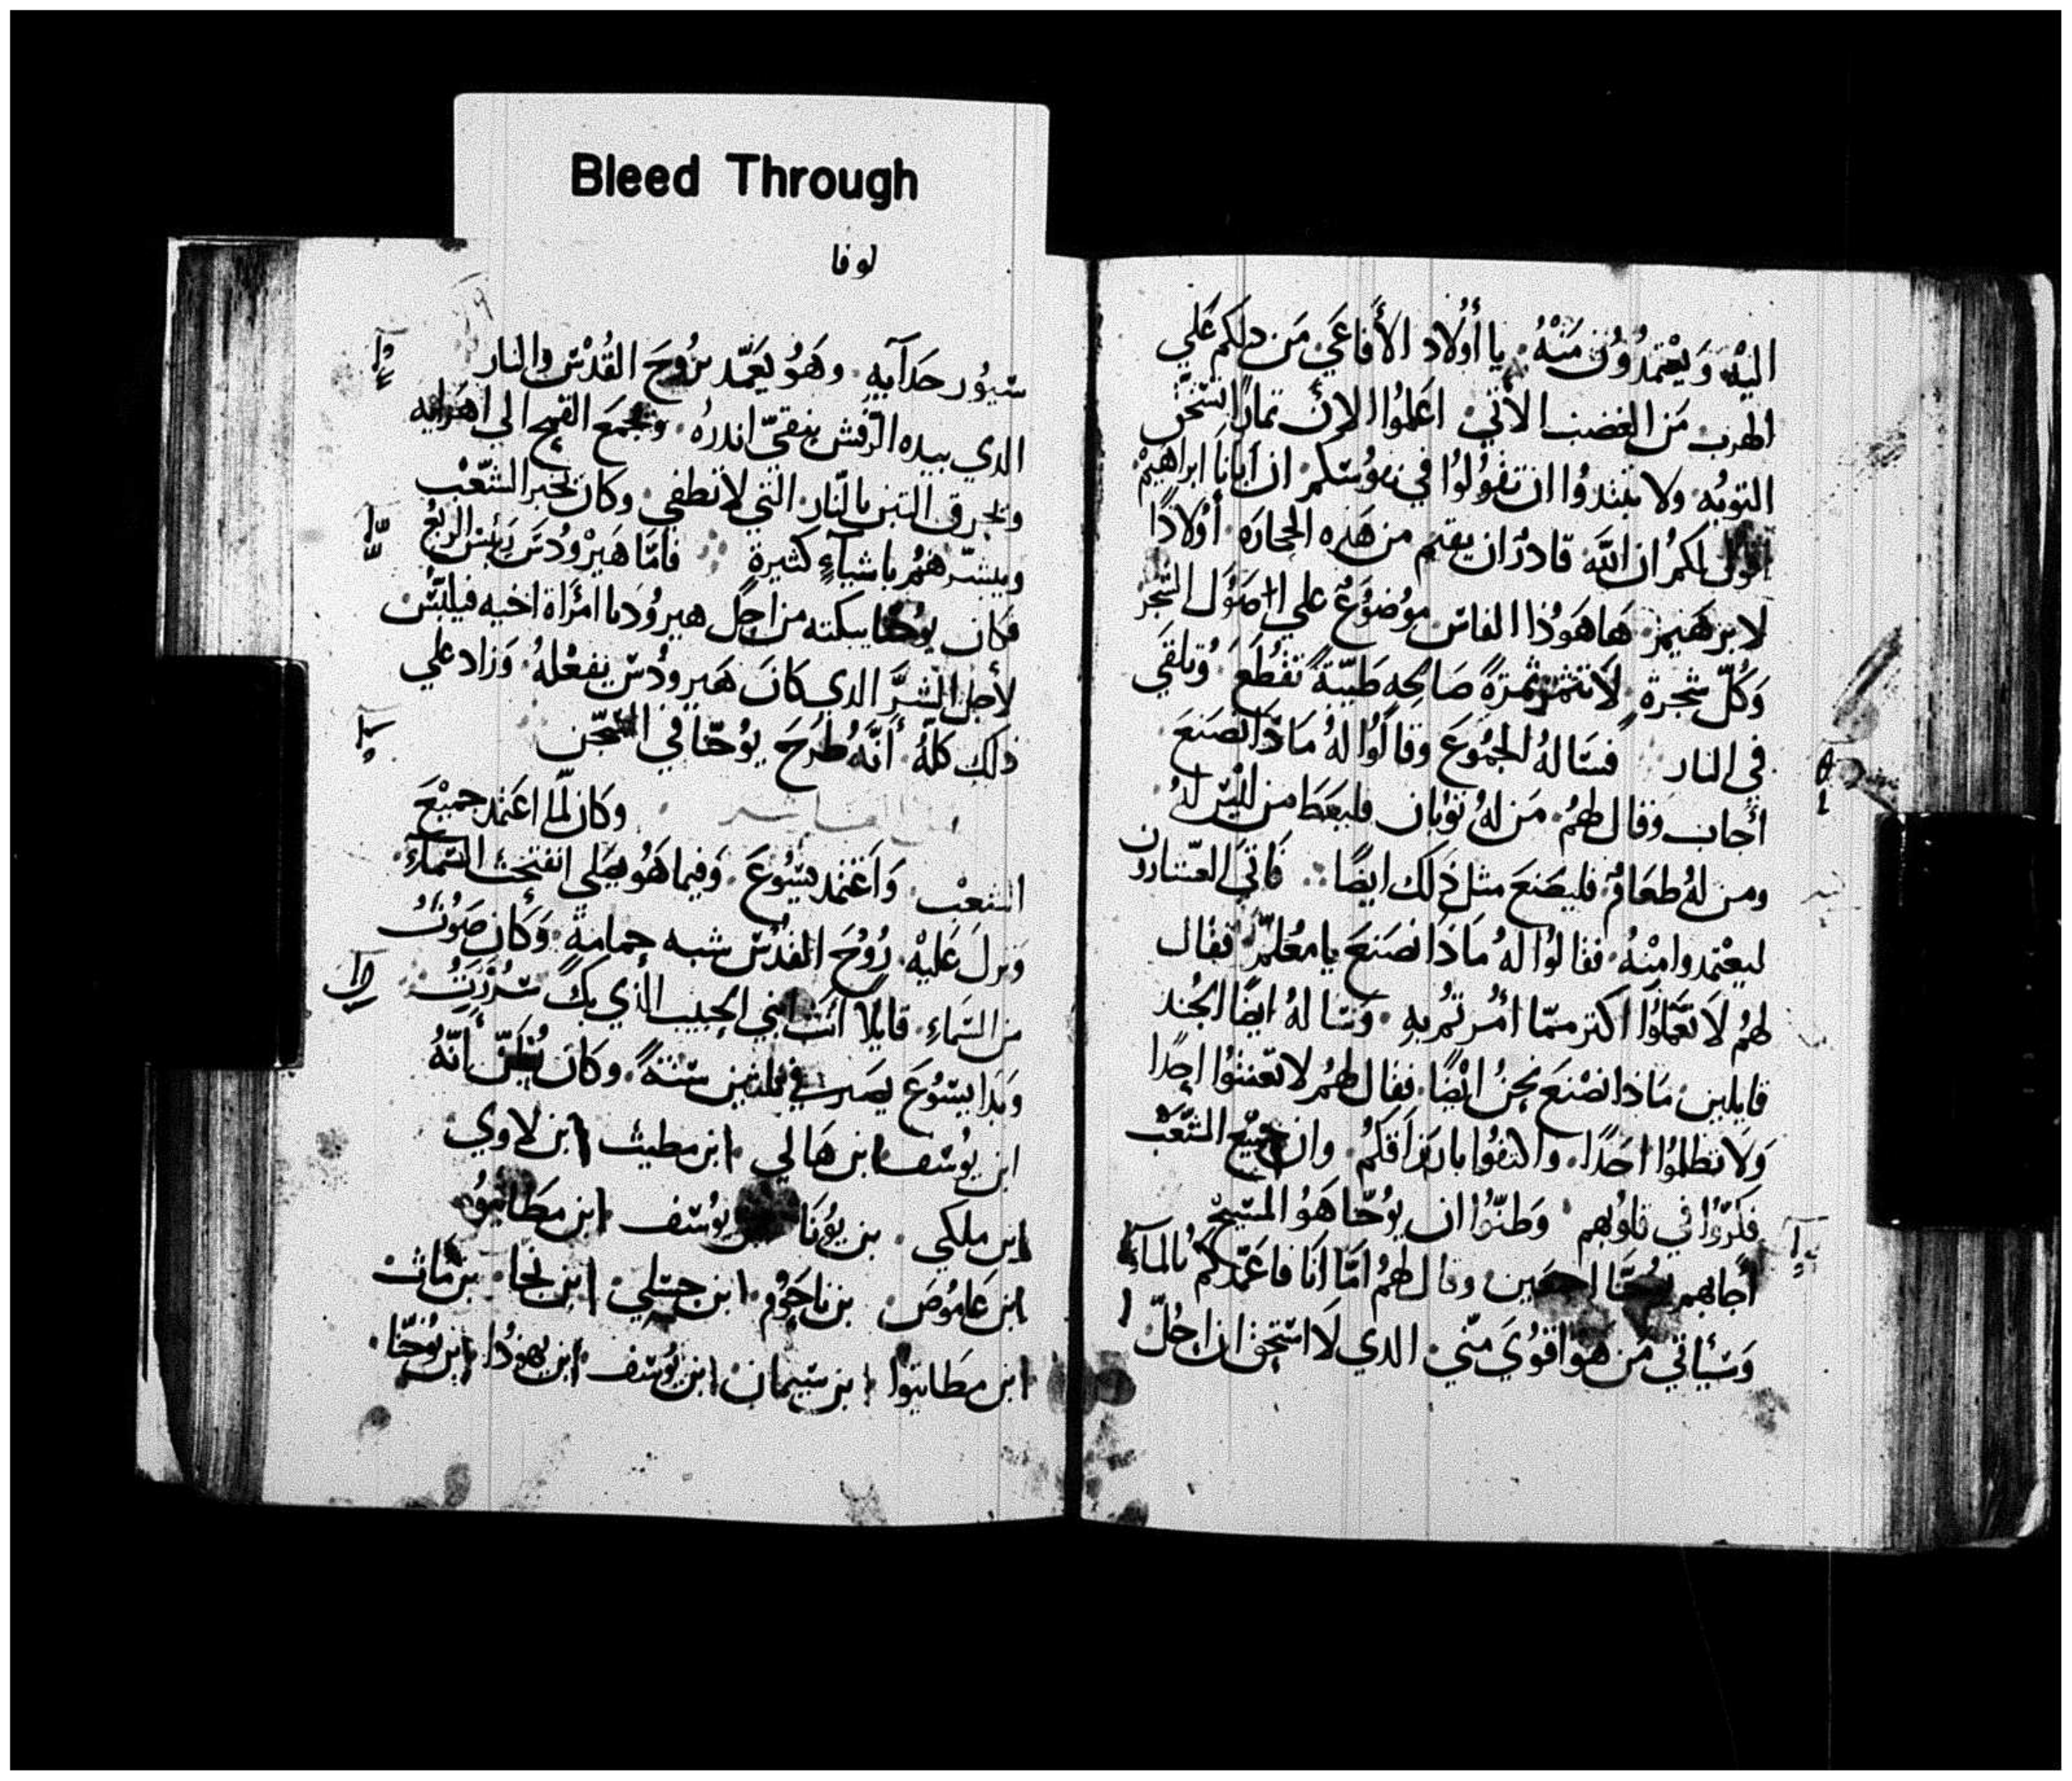 Bleed Through
لوقا
اليْه وَيعْتمدُوُن مَنْهُ. يا أوُلاد الأفاعَي مَن دلكم عَلي
الهرب مَن الغضب الاتي. اعَلموُا الان تمارًا تستحق
التوبُه ولا تبتدوُا ان تقوُلوُا في نفوُسَكم ان ابانَا ابراهيمْ
اقول لكمُ ان اللَّه قادرُ ان يقيم من هَذه الحجارَه أوُلادًا
لابرهَيمز هَا هَوُذا الفاسَ موُضوُعٌ علي اصَوُل الشجَر
وَكُلّ شَجرة لَا تتمَر تمرَةً صَالحِه طَيبّةً تقطَع وُتلقَي
في النار فسَالهُ الجمُوُعَ وقالوُا لهُ مَاذَا نصَنعَ
أجَاب وقال لهمُ. مَن لهُ توُبان فليعَطَ من ليْسَ لهُ
ومن لهُ طعَامٌ فليصَنعَ مثل ذَلك ايضًا. فَاتَي العشارون
ليعْتمدوا منْهُ. فقالوُا لهُ مَاذَا نصَنعَ يا معُلمّ. فقال
لهمُ لَا تعَملوُا اكتر ممّا أمُرتُم بهِ. وَسَالهُ ايضًا الجُند
قايلين. مَاذا نصْنَع نحنُ ايْضًا. فقال لهمُر لا تعّنتوُا احدًا
وَلا تظلموُا احَدًا. واكتفوُا بارَزاقكمُ. وان جميْع الشعَّب
فكرّوُا في قلوُبهم. وَظنوُّا ان يوُحّنا هَوُ المسَيح
أجابهم يوُحَنَّا اجمعين وقال لهمُ امَّا انَا فاعَمّدكمُ بالماءَ
وَسَيأتي مَن هَوُ اقوُيَ منّي. الدي لَا استحق ان احُلّ
سَيوُر حَدآيهِ. وهَوُ يعَمّد بروُحَ القُدْسَ والنار
الدي بيده الرّفش ينقيّ اندره. وَيجمعَ القمح الي اهَرايه
ويحرق التبن بالنّار التي لا تطفي. وكان يخبر الشّعْب
ويبشّرهُمُر باشيآءٍ كثيرةٍ فامّا هَيرْوُدسَ رَئيسْ الربعُ
فكان يوُحَنا يبكته من اجل هيروُديا امرَأة اخيه فيلبسَ
لأجل الشرَّ الدي كانَ هَيروُدسَ يفعْلهُ وَزاد علي
ذلك كلّهُ. أنَّه طُرَحَ يوُحّنا في السّجّن
وكان لمّا اعَتمد جميْعَ
الشعبْ. وَاعَتمد يسَوُعَ. وَفيما هَوُ يصَلي انفتحتْ السَّماَء.
وَنزلَ عَليهْ رُوُحَ القُدسَ شبه حمامةٍ. وَكَان صَوُتُ
من السّماءِ. قايلًا أنتَ ابني الحبيب الذي بك سُررَتُ
وَبدَا يسوُعَ يصَير في ثلثين سَنةً. وكان يُظنّ أنّهُ
ابن يوُسَف ابن هَالي ابن مطيث ابن لاوي
ابن ملكي. بن يوُنَا بن يوُسَف ابن مَطَاتيوُ
ابن عَاموُصَ بن ناحَوُم. ابن حسَلي. ابن نجَا. بن مَاثت
ابن مَطَاتيوا ابن سَيمان ابن يوُسَف ابن يهوُدا ابن يوُحَنّا.